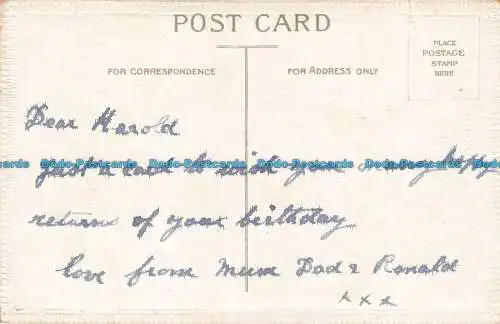 POST CARD
FOR CORRESPONDENCE
FOR ADDRESS ONLY
PLACE
POSTAGE
STAMP
HERE
Dear Harold
just a card to wish you many happy
returns of your birthday
love from Mum Dad & Ronald
x x x
Dodo-Postcards Dodo-Postcards Dodo-Postcards Dodo-Postcards Dodo-Postcards